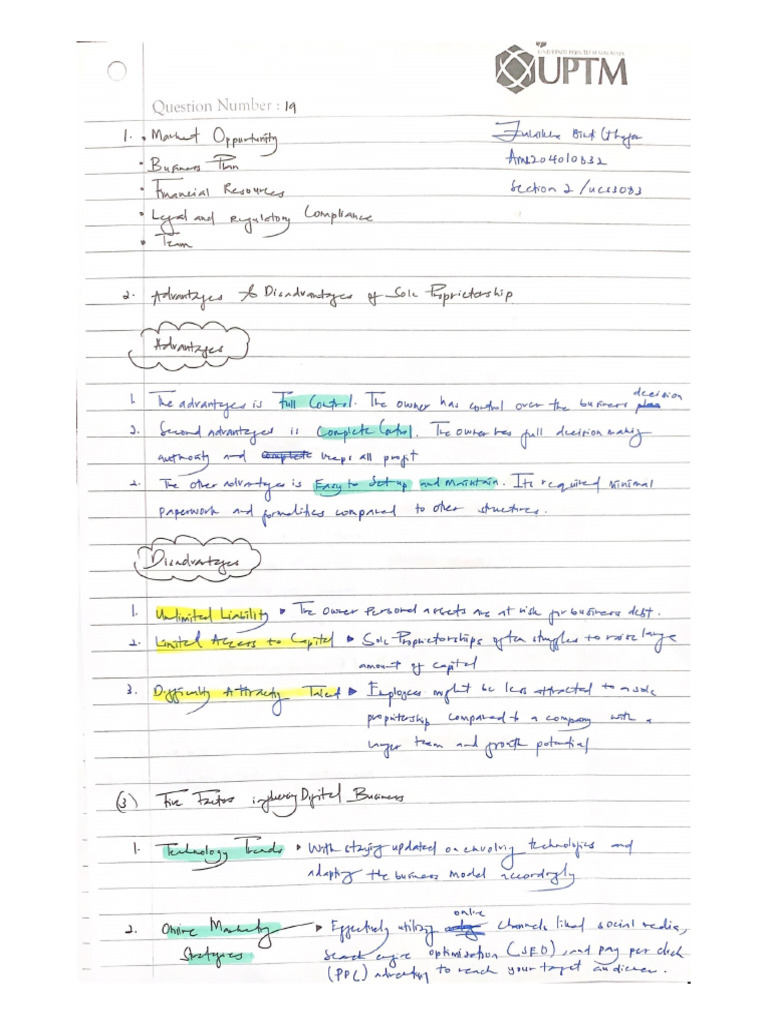 UNIVERSITI POLY-TECH MALAYSIA
UPTM
Question Number : 19
1. • Market Opportunity
• Business Plan
• Financial Resources
• Legal and Regulatory Compliance
• Team
AM2204010832
Section 2 / UCS3083
2. Advantages & Disadvantages of Sole Proprietorship
Advantages
1. The advantages is Full Control. The owner has control over the business decision
2. Second advantages is Complete Control. The owner has full decision making
authority and keeps all profit
2. The other advantages is Easy to Set up and maintain. Its required minimal
paperwork and formalities compared to other structures.
Disadvantages
1. Unlimited Liability • The owner personal assets are at risk for business debt.
2. Limited Access to Capital • Sole Proprietorships often struggles to raise large
amount of capital
3. Difficulty Attracting Talent • Employees might be less attracted to a sole
propritership compared to a company with a
larger team and growth potential
(3) Five Factors Digital Business
1. Technology Trends • With staying updated on envolving technologies and
adapting the business model accordingly
2. Online Marketing • Effectively utilizing online channels liked social media,
Strategies search engine optimisation (SEO), and pay per click
(PPC) advertising to reach your target audience.